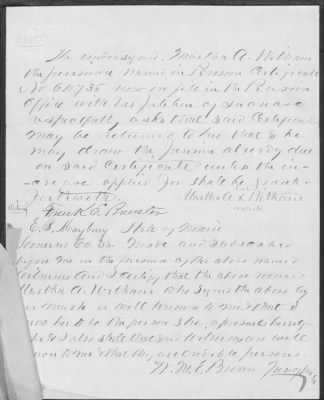 The undersigned Martha A. Witham
the pensioner named in Pension Certificate
No. now on file in the Pension
Office with her petition of Increase
respectfully asks that said Certificate
may be returned to her that she
may draw the pension already due
on said Certificate unless the in-
crease applied for shall be granted
forthwith. Martha A. X Witham
mark
Frank E.
E. S. State of Maine
ss. Made and subscribed
before me in the presence of the above named
witnesses And I certify that the above named
Martha A. Witham who signs the above by
her mark is well known to me that I
to be the person she represents herself
to be & I also state that said witnesses are well
known to me that they are credible persons.